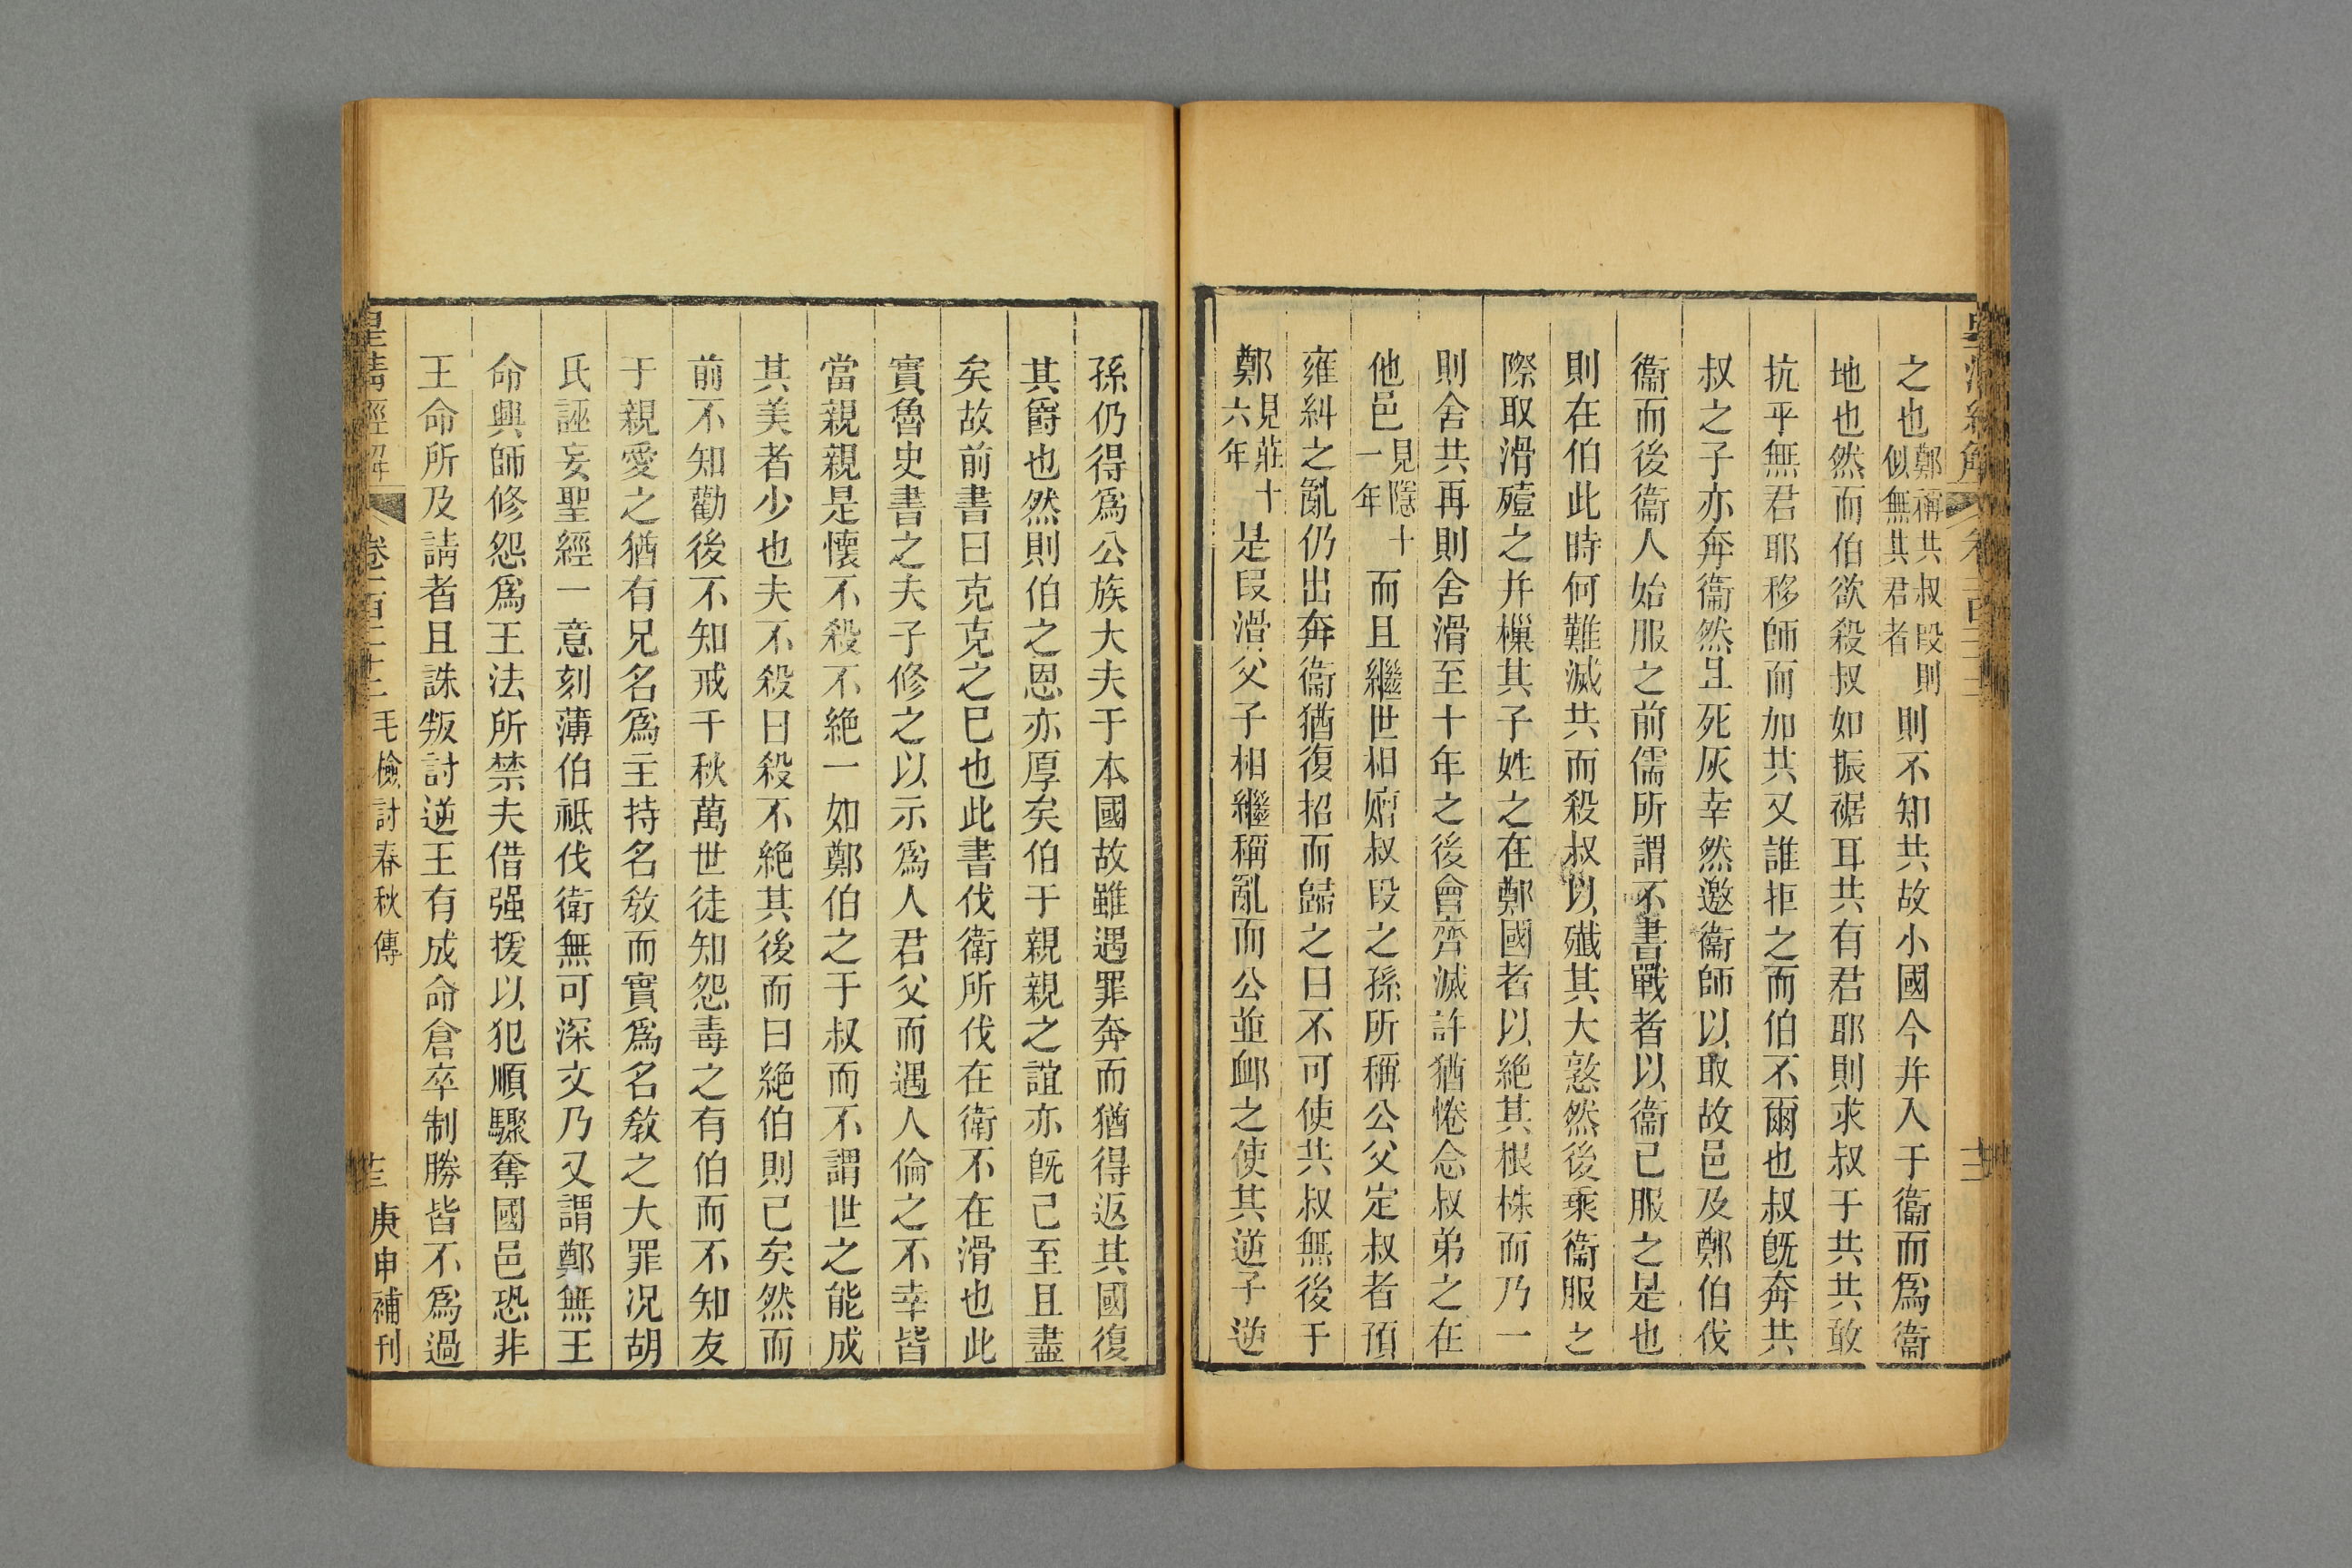 之也鄭稱共叔段則似無其君者則不知共故小國今并入于衞而爲衞
地也然而伯欲殺叔如振裾耳共有君耶則求叔于共共敢
抗乎無君耶移師而加共又誰拒之而伯不爾也叔旣奔共
叔之子亦奔衞然且死灰幸然邀衞師以取故邑及鄭伯伐
衞而後衞人始服之前儒所謂不書戰者以衞已服之是也
則在伯此時何難滅共而殺叔以殱其大憝然後乘衞服之
際取滑殪之并樔其子姓之在鄭國者以絶其根株而乃一
則舍共再則舍滑至十年之後會齊滅許猶惓念叔弟之在
他邑見隱十一年而且繼世相嬗叔段之孫所稱公父定叔者頂
雍糾之亂仍出奔衞猶復招而歸之曰不可使共叔無後于
鄭見莊十六年是段滑父子相繼稱亂而公並卹之使其逆子逆
皇清經解
卷一百二十二
十二
孫仍得爲公族大夫于本國故雖遇罪奔而猶得返其國復
其爵也然則伯之恩亦厚矣伯于親親之誼亦旣已至且盡
矣故前書曰克克之已也此書伐衞所伐在衞不在滑也此
實魯史書之夫子修之以示爲人君父而遇人倫之不幸皆
當親親是懷不殺不絶一如鄭伯之于叔而不謂世之能成
其美者少也夫不殺曰殺不絶其後而曰絶伯則已矣然而
前不知勸後不知戒千秋萬世徒知怨毒之有伯而不知友
于親愛之猶有兄名爲主持名敎而實爲名敎之大罪况胡
氏誣妄聖經一意刻薄伯祗伐衛無可深文乃又謂鄭無王
命興師修怨爲王法所禁夫借强援以犯順驟奪國邑恐非
王命所及請者且誅叛討逆王有成命倉卒制勝皆不爲過
皇清經解
卷一百二十二
毛檢討春秋傳
十三
庚申補刊